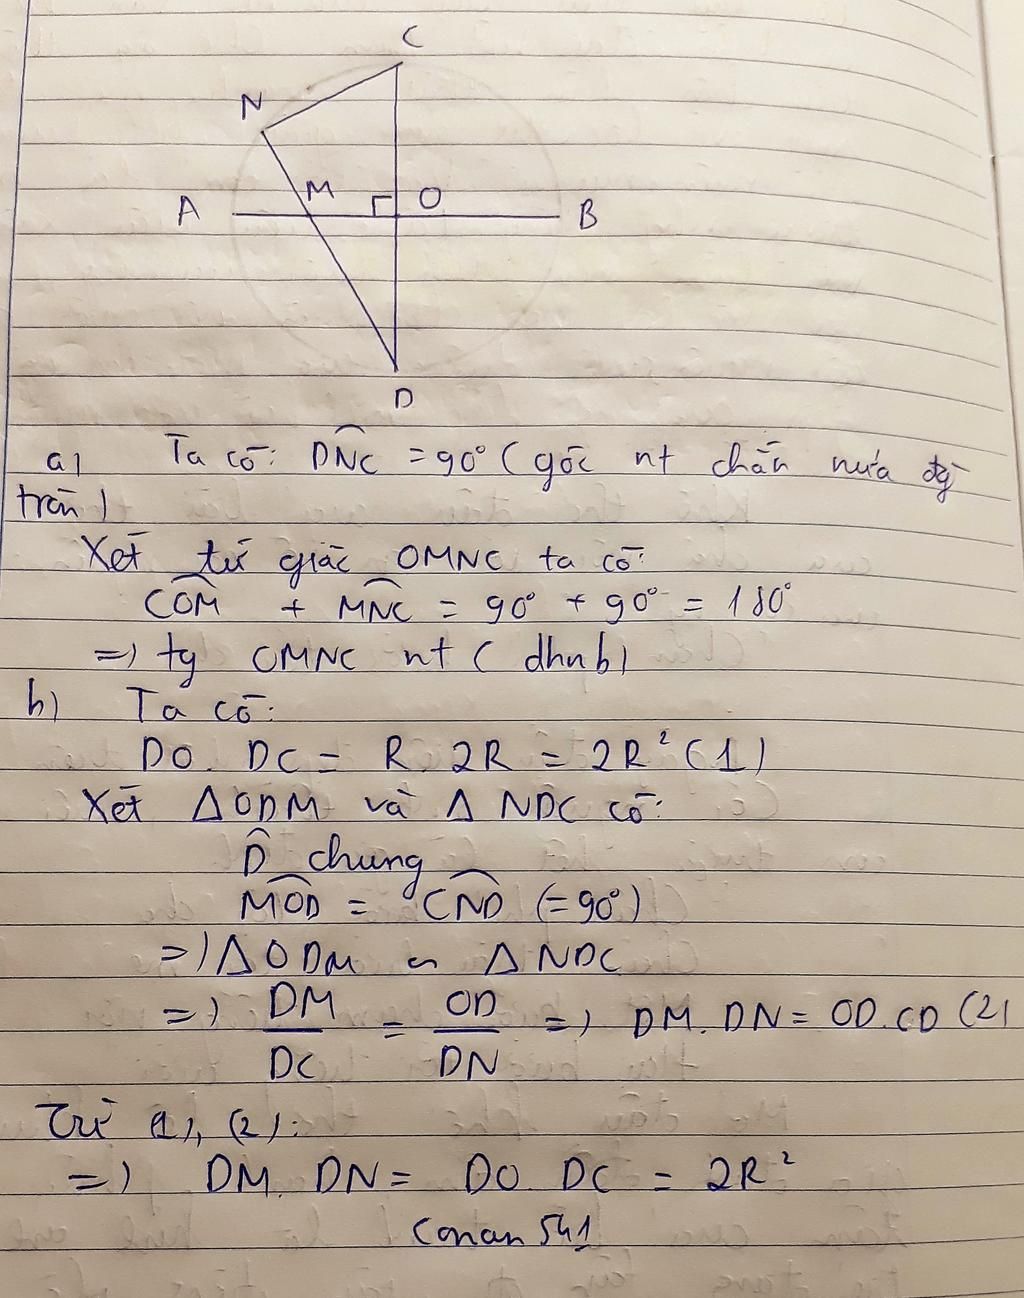 C
N
M
O
A
B
D
a) Ta có: DNC = 90° ( góc nt chắn nửa đg
tròn )
Xét tứ giác OMNC ta có:
COM + MNC = 90° + 90° = 180°
=) tg OMNC nt ( dhnb)
b) Ta có:
DO. DC = R. 2R = 2R² (1)
Xét Δ ODM và Δ NDC có:
D̂ chung
MOD = CND (=90°)
=) Δ ODM ∽ Δ NDC
=) DM/DC = OD/DN =) DM. DN = OD.CD (2)
Từ (1), (2):
=) DM. DN = DO. DC = 2R²
Conan 541